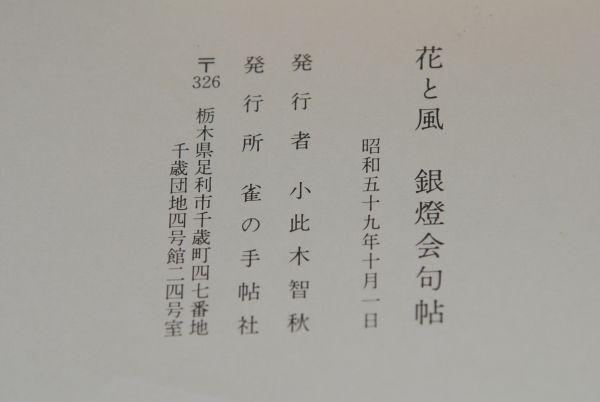 花と風　銀燈会句帖
昭和五十九年十月一日
発行者　小此木智秋
発行所　雀の手帖社
〒326　栃木県足利市千歳町四七番地
千歳団地四号館二四号室